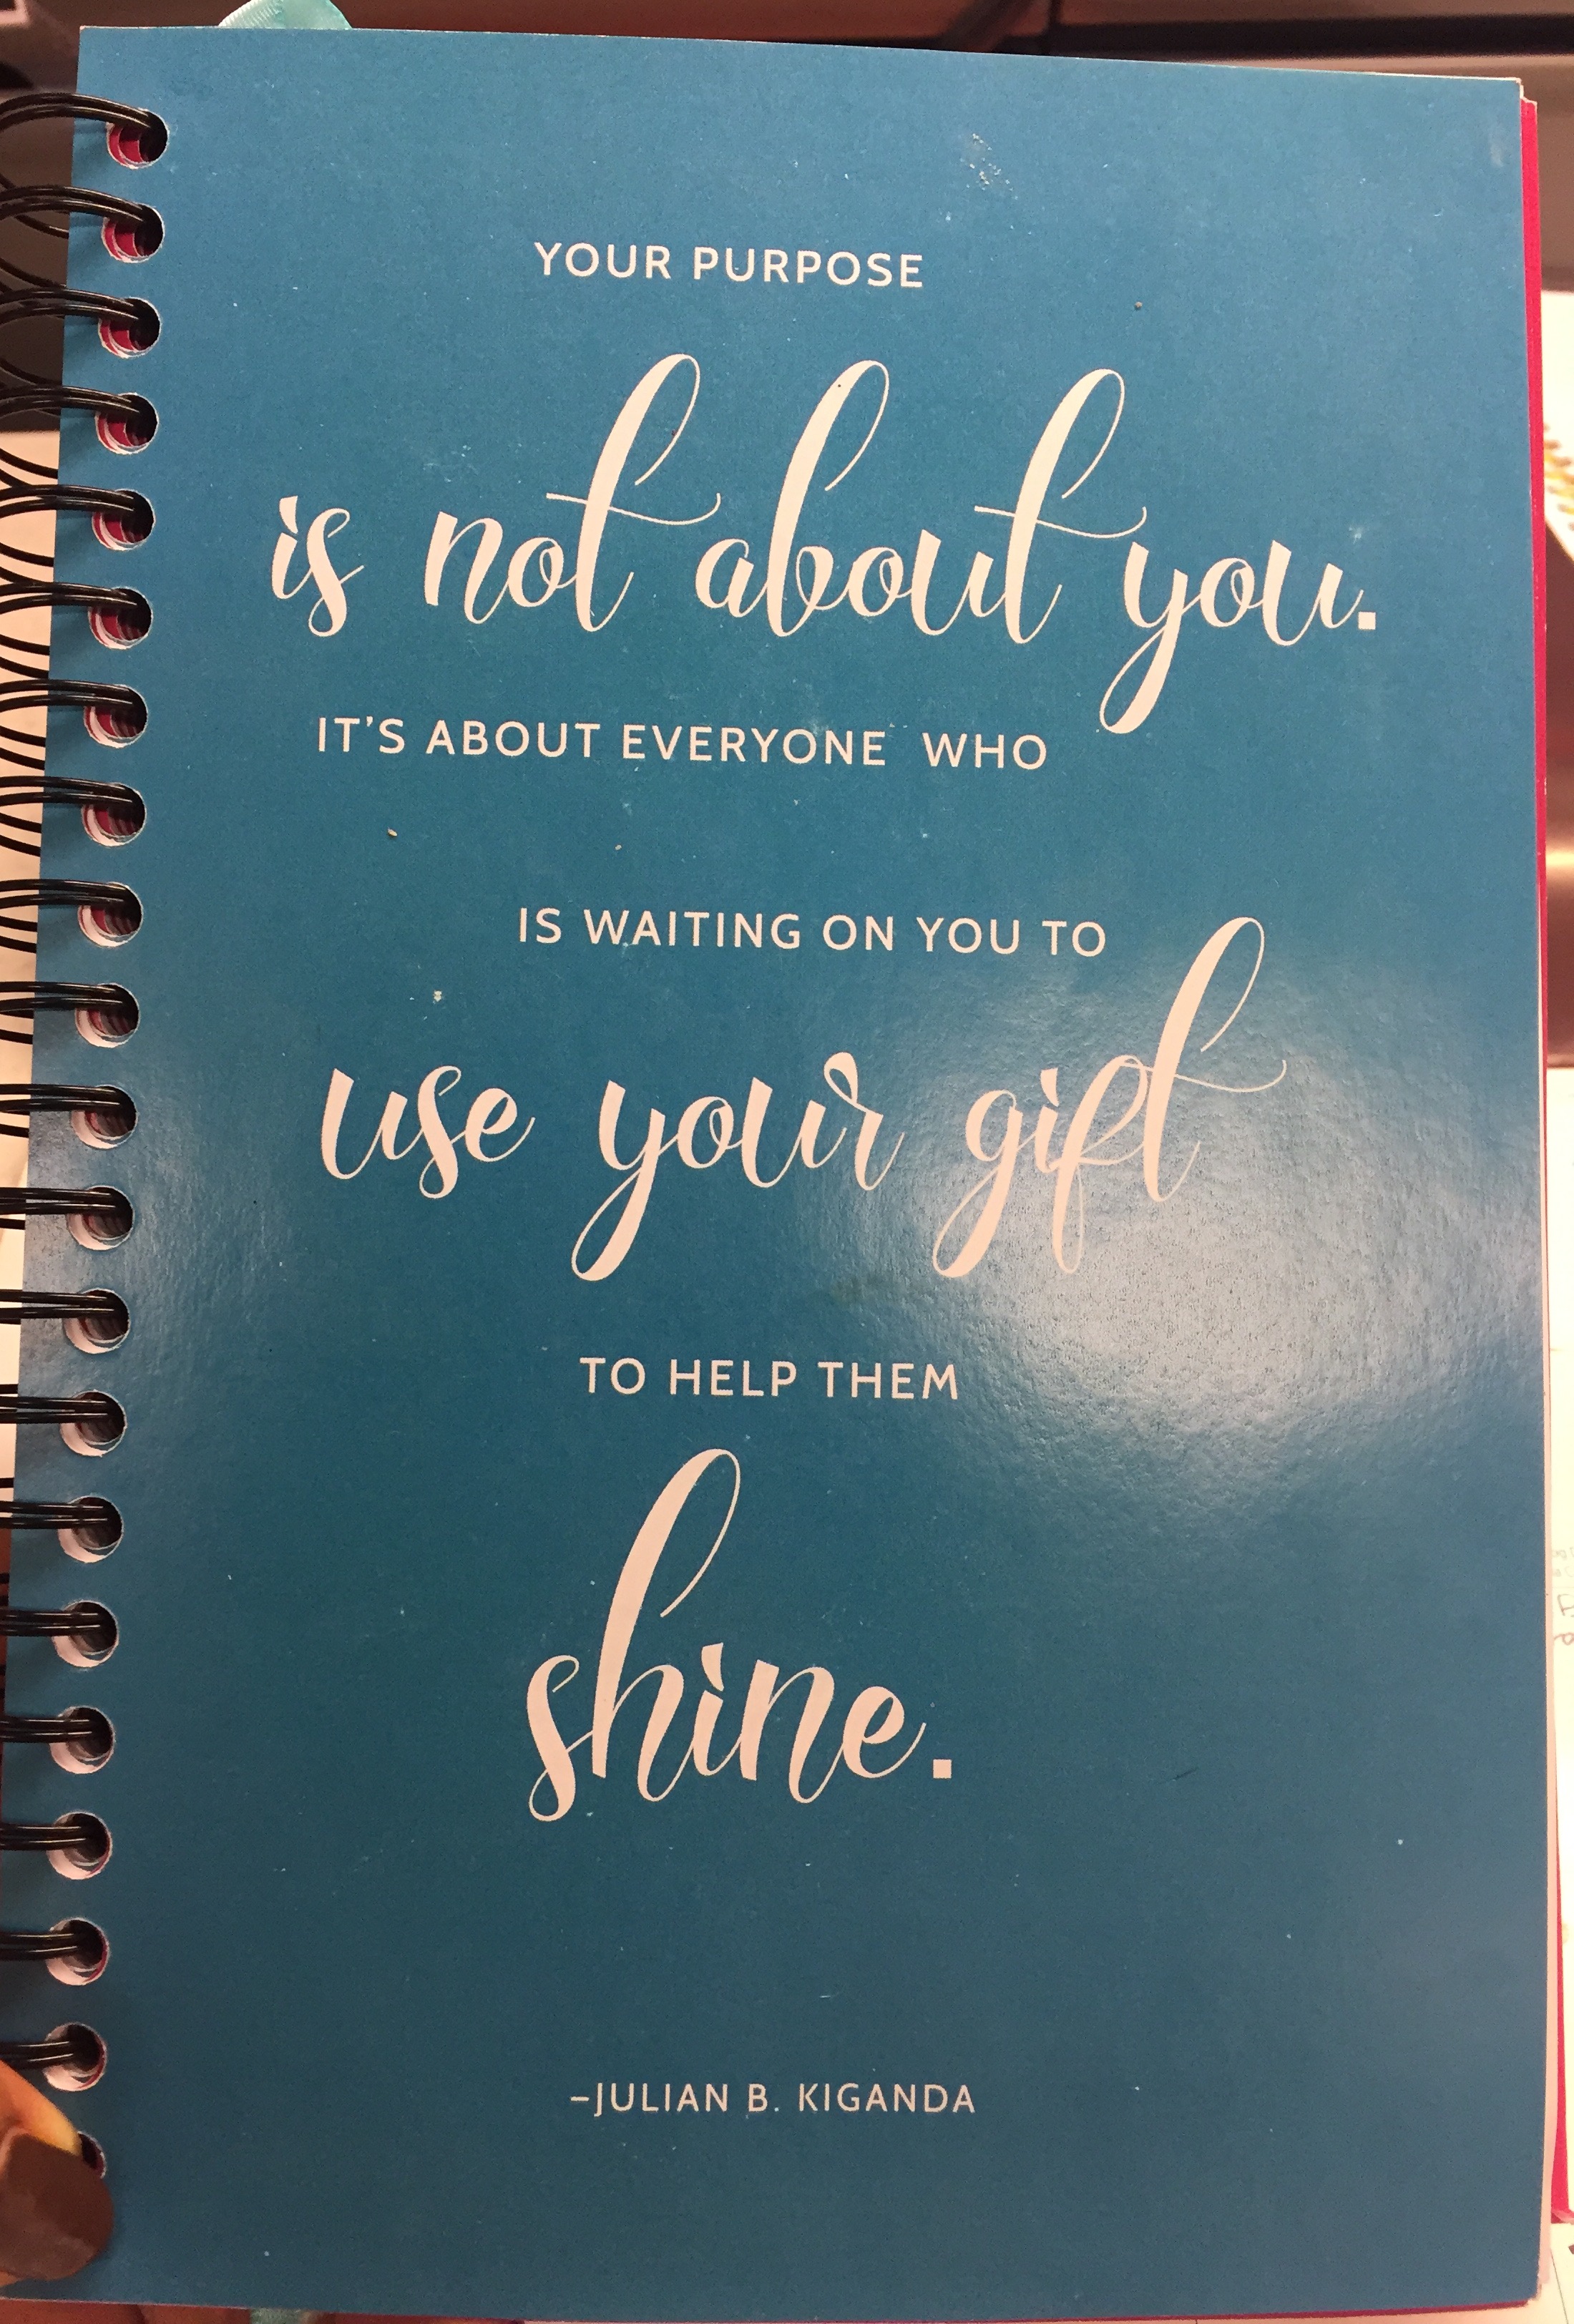 YOUR PURPOSE
is not about you.
IT'S ABOUT EVERYONE WHO
IS WAITING ON YOU TO
use your gift
TO HELP THEM
shine.
–JULIAN B. KIGANDA